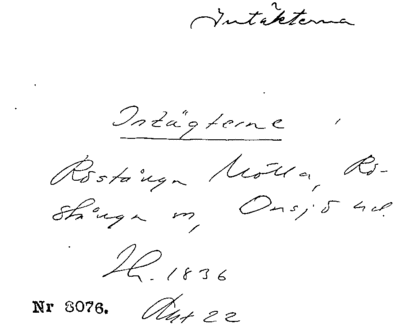 Intäkterna
Intägterne
Röstånga Mölla, Rö-
stånga sn, Onsjö hd.
Th. 1836
Nr 8076. Akt 22